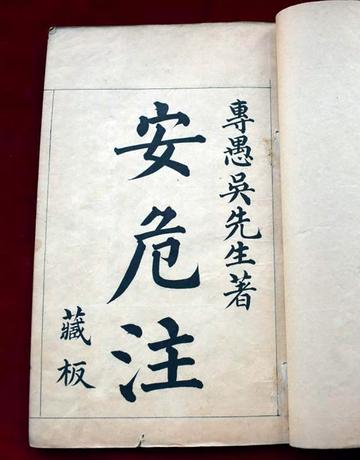 專愚吳先生著
安危注
藏板